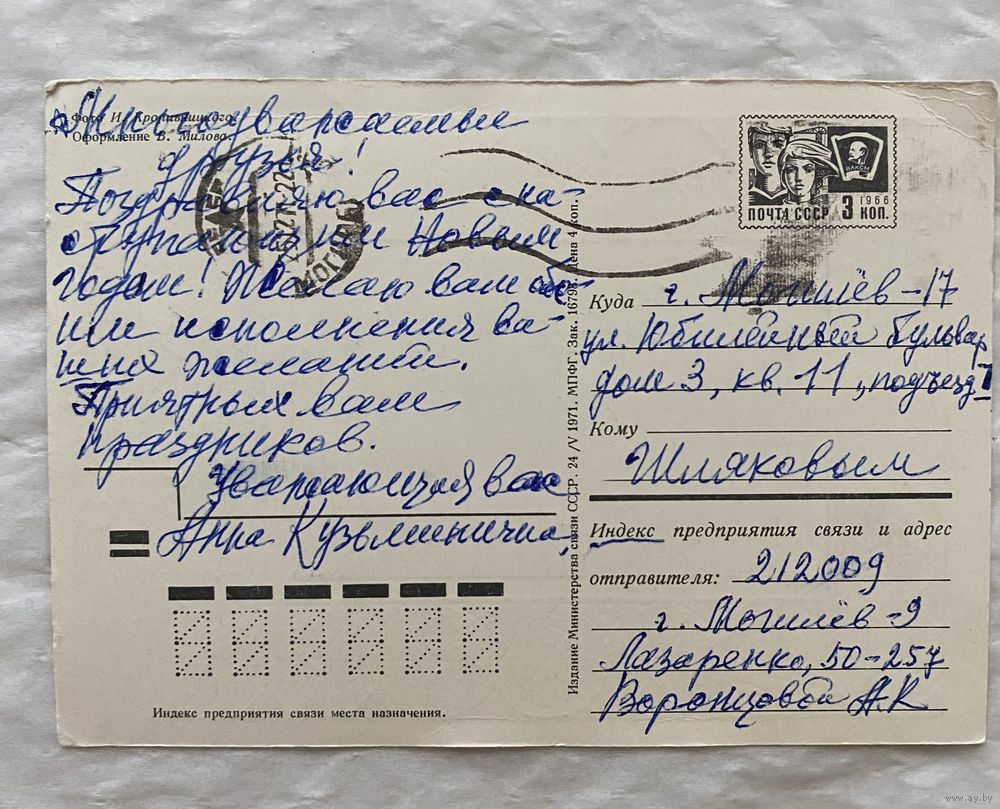 Фото И. Кропивницкого.
Оформление В. Милова.
Многоуважаемые
друзья!
Поздравляю вас с на-
ступающим Новым
годом! Желаю вам
исполнения ва-
ших желаний.
Приятных вам
праздников.
Уважающая вас
Анна Кузьминична.
ПОЧТА СССР 3 КОП.
1966
ВЛКСМ
Куда г. Могилёв-17
ул. Юбилейный бульвар
дом 3, кв. 11, подъезд I
Кому
Шляковым
Индекс предприятия связи и адрес
отправителя: 212009
г. Могилёв-9
Лазаренко, 50-257
Воронцовой А.К
Издание Министерства связи СССР. 24/V 1971. МПФГ. Зак. 16795. Цена 4 коп.
Индекс предприятия связи места назначения.
www.ay.by